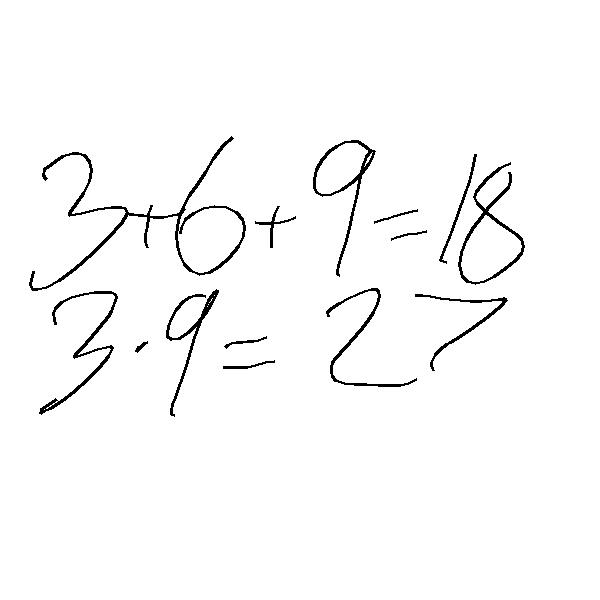 3+6+9=18
3·9=27